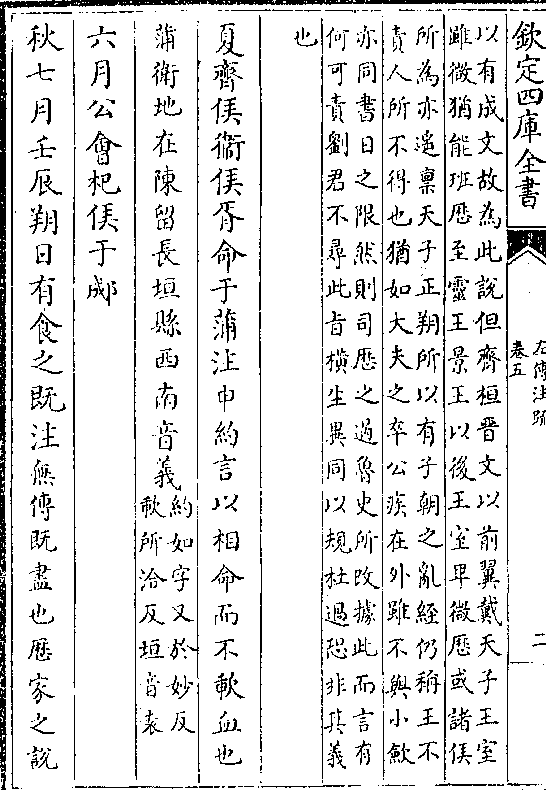 欽定四庫全書
左傳注疏
卷五
二
以有成文故為此說但齊桓晉文以前翼戴天子王室
雖微猶能班厯至靈王景王以後王室卑微厯或諸侯
所為亦遥禀天子正朔所以有子朝之亂經仍稱王不
責人所不得也猶如大夫之卒公疾在外雖不與小歛
亦同書日之限然則司厯之過魯史所改據此而言有
何可責劉君不尋此㫖横生異同以規杜過恐非其義
也
夏齊侯衞侯胥命于蒲注申約言以相命而不歃血也
蒲衛地在陳留長垣縣西南音義
約如字又於妙反
歃所洽反垣音袁
六月公會杞侯于郕
秋七月壬辰朔日有食之既注無傳既盡也厯家之說